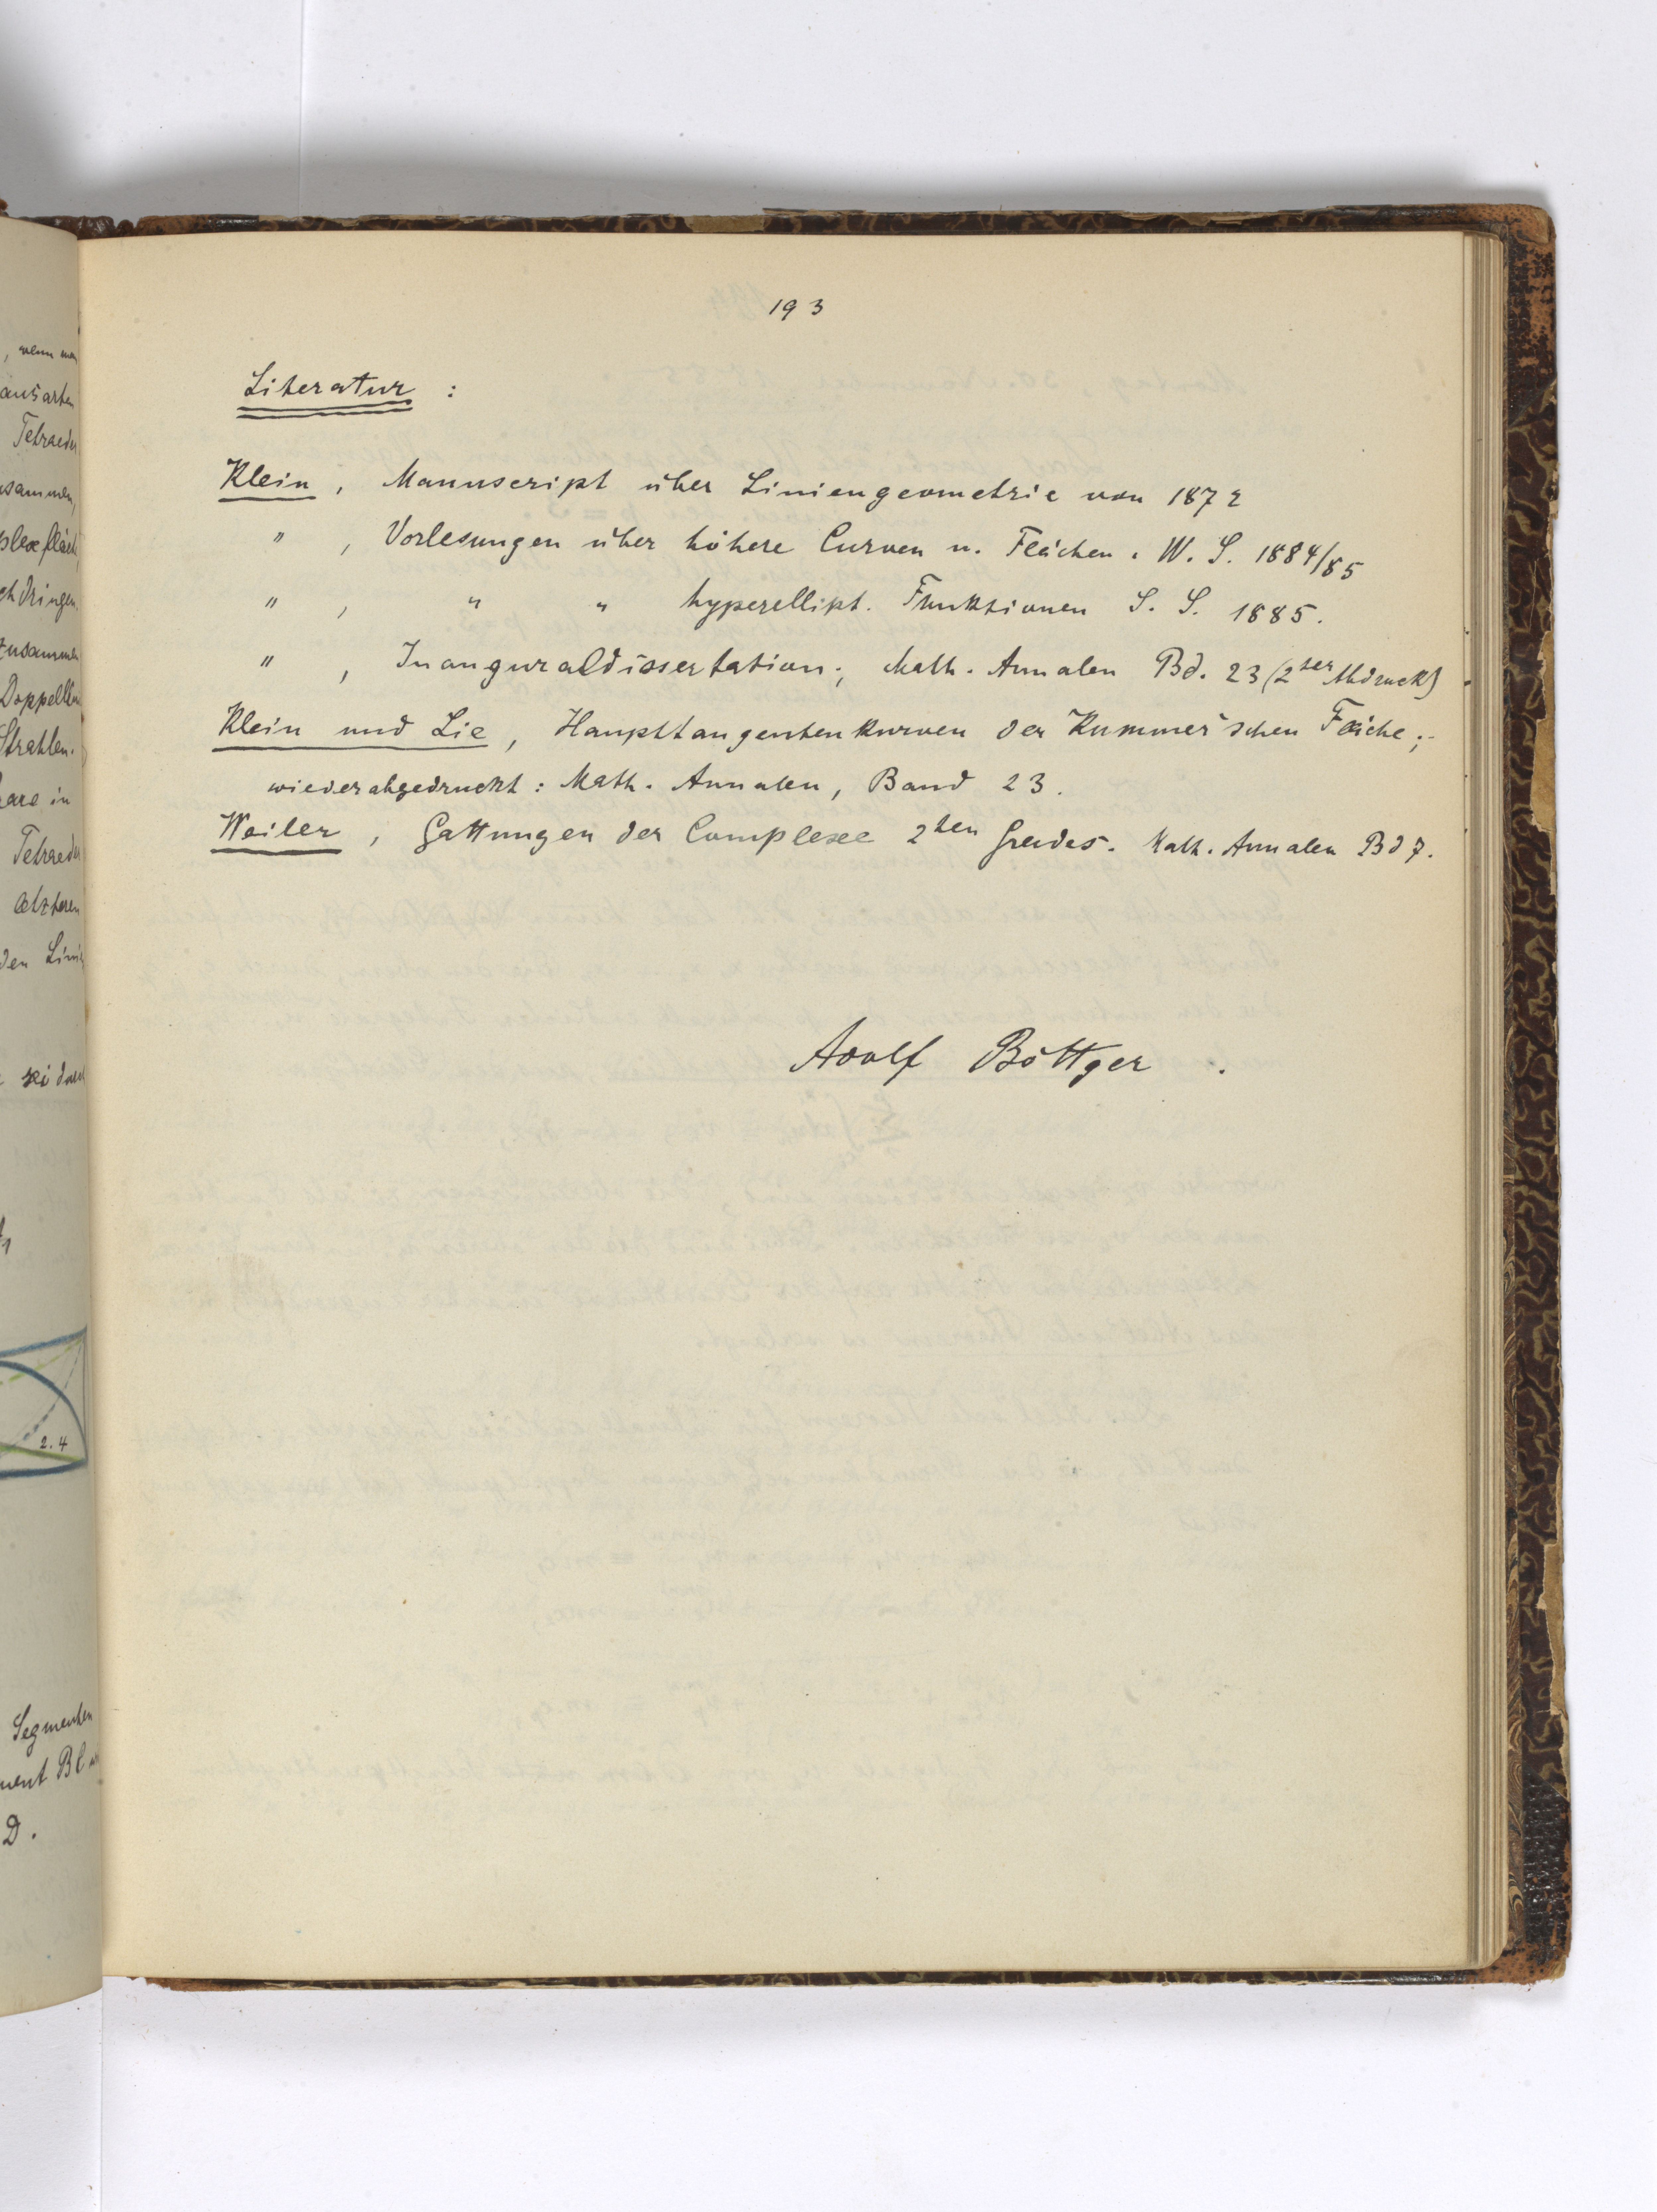 193
Literatur :
Klein , Manuscript über Liniengeometrie von 1872
" , Vorlesungen über höhere Curven u. Flächen. W. S. 1884/85
" , " " hyperellipt. Funktionen S. S. 1885.
" , Inauguraldissertation; Math. Annalen Bd. 23 (2ter Abdruck)
Klein und Lie , Haupttangentenkurven der Kummer'schen Fläche;
wiederabgedruckt : Math. Annalen, Band 23.
Weiler , Gattungen der Complexe 2ten Grades. Math. Annalen Bd 7.
Adolf Böttger .
, wenn man
ausarten
Tetraeder
Doppellinien
Strahlen.
Tetraeder
den Linien
2.4
Segmenten
D.